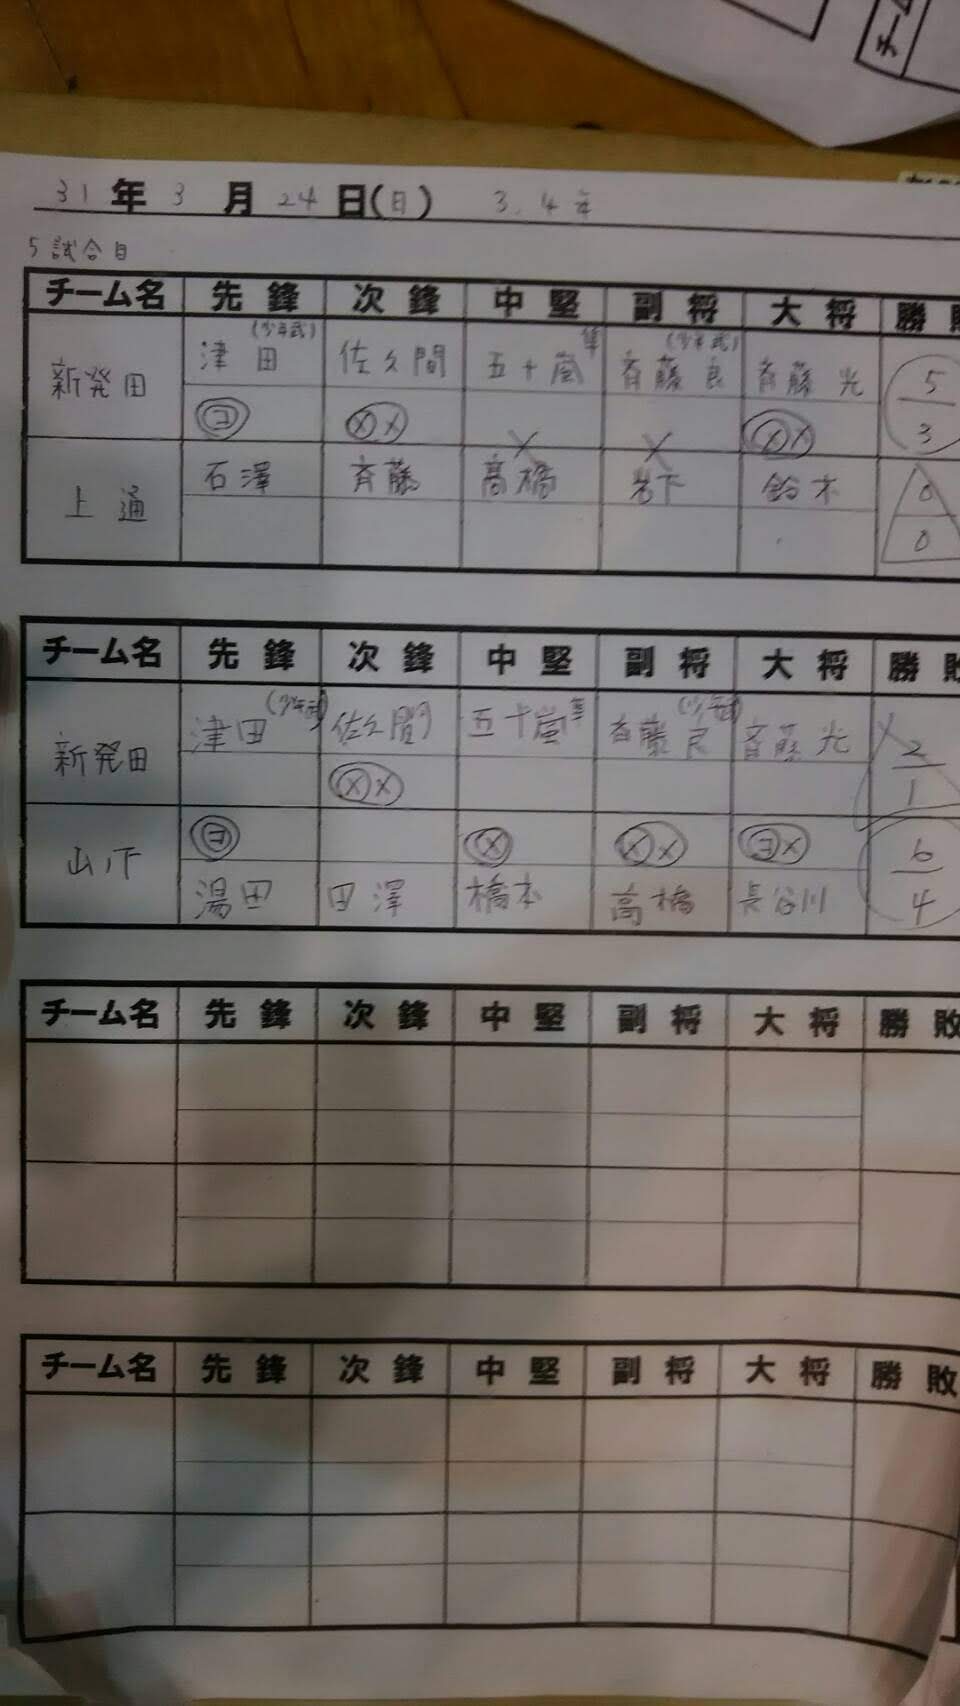 31年3月24日(日) 3.4年
5試合目
チーム名 先鋒 次鋒 中堅 副将 大将 勝
新発田 津田(少年武) 佐久間 五十嵐隼 斉藤良(少年武) 斉藤光 5
コ メメ メメ 3
上通 石澤 斉藤 高橋 岩下 鈴木 0
0
チーム名 先鋒 次鋒 中堅 副将 大将 勝敗
新発田 津田(少年武) 佐久間 五十嵐隼 斉藤良(少年武) 斉藤光 2
メメ 1
山ノ下 コ メ メメ コメ 6
湯田 田澤 橋本 高橋 長谷川 4
チーム名 先鋒 次鋒 中堅 副将 大将 勝敗
チーム名 先鋒 次鋒 中堅 副将 大将 勝敗